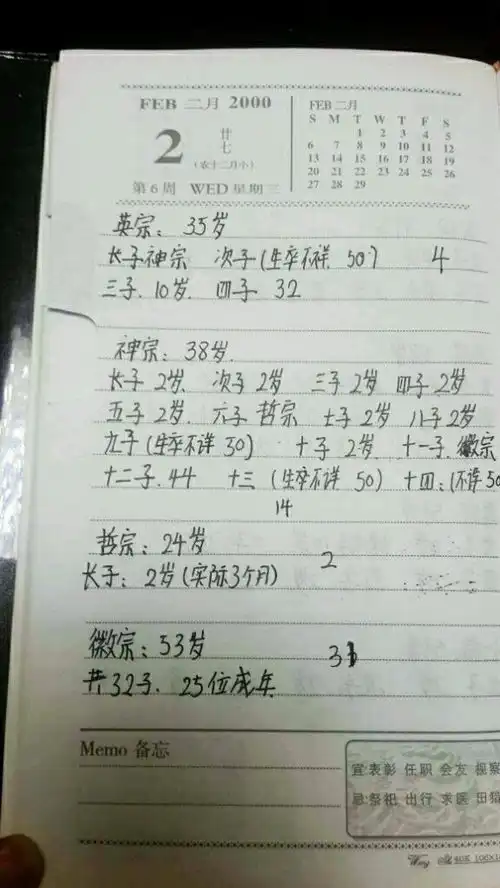 FEB 二月 2000
2
廿七
(农十二月小)
第6周 WED 星期三
FEB 二月
S M T W T F S
1 2 3 4 5
6 7 8 9 10 11 12
13 14 15 16 17 18 19
20 21 22 23 24 25 26
27 28 29
英宗：35岁
长子神宗 次子(生卒不祥 50?) 4
三子.10岁. 四子 32
神宗：38岁.
长子 2岁. 次子 2岁 三子 2岁 四子 2岁
五子 2岁. 六子 哲宗 七子 2岁 八子 2岁
九子(生卒不详 30) 十子 2岁 十一子.徽宗
十二子.44 十三 (生卒不详 50) 十四：(不详 50
14
哲宗：24岁
长子：2岁(实际3个月) 2
徽宗：53岁 31
共32子. 25位成年
Memo 备忘
宜 表彰 任职 会友 视察
忌 祭祀 出行 求医 田猎